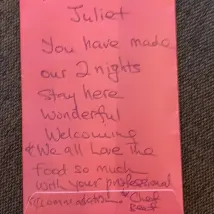 Juliet
You have made
our 2 nights
stay here
wonderful
Welcoming
& We all Love the
food so much
with your professional
recommendation Chef